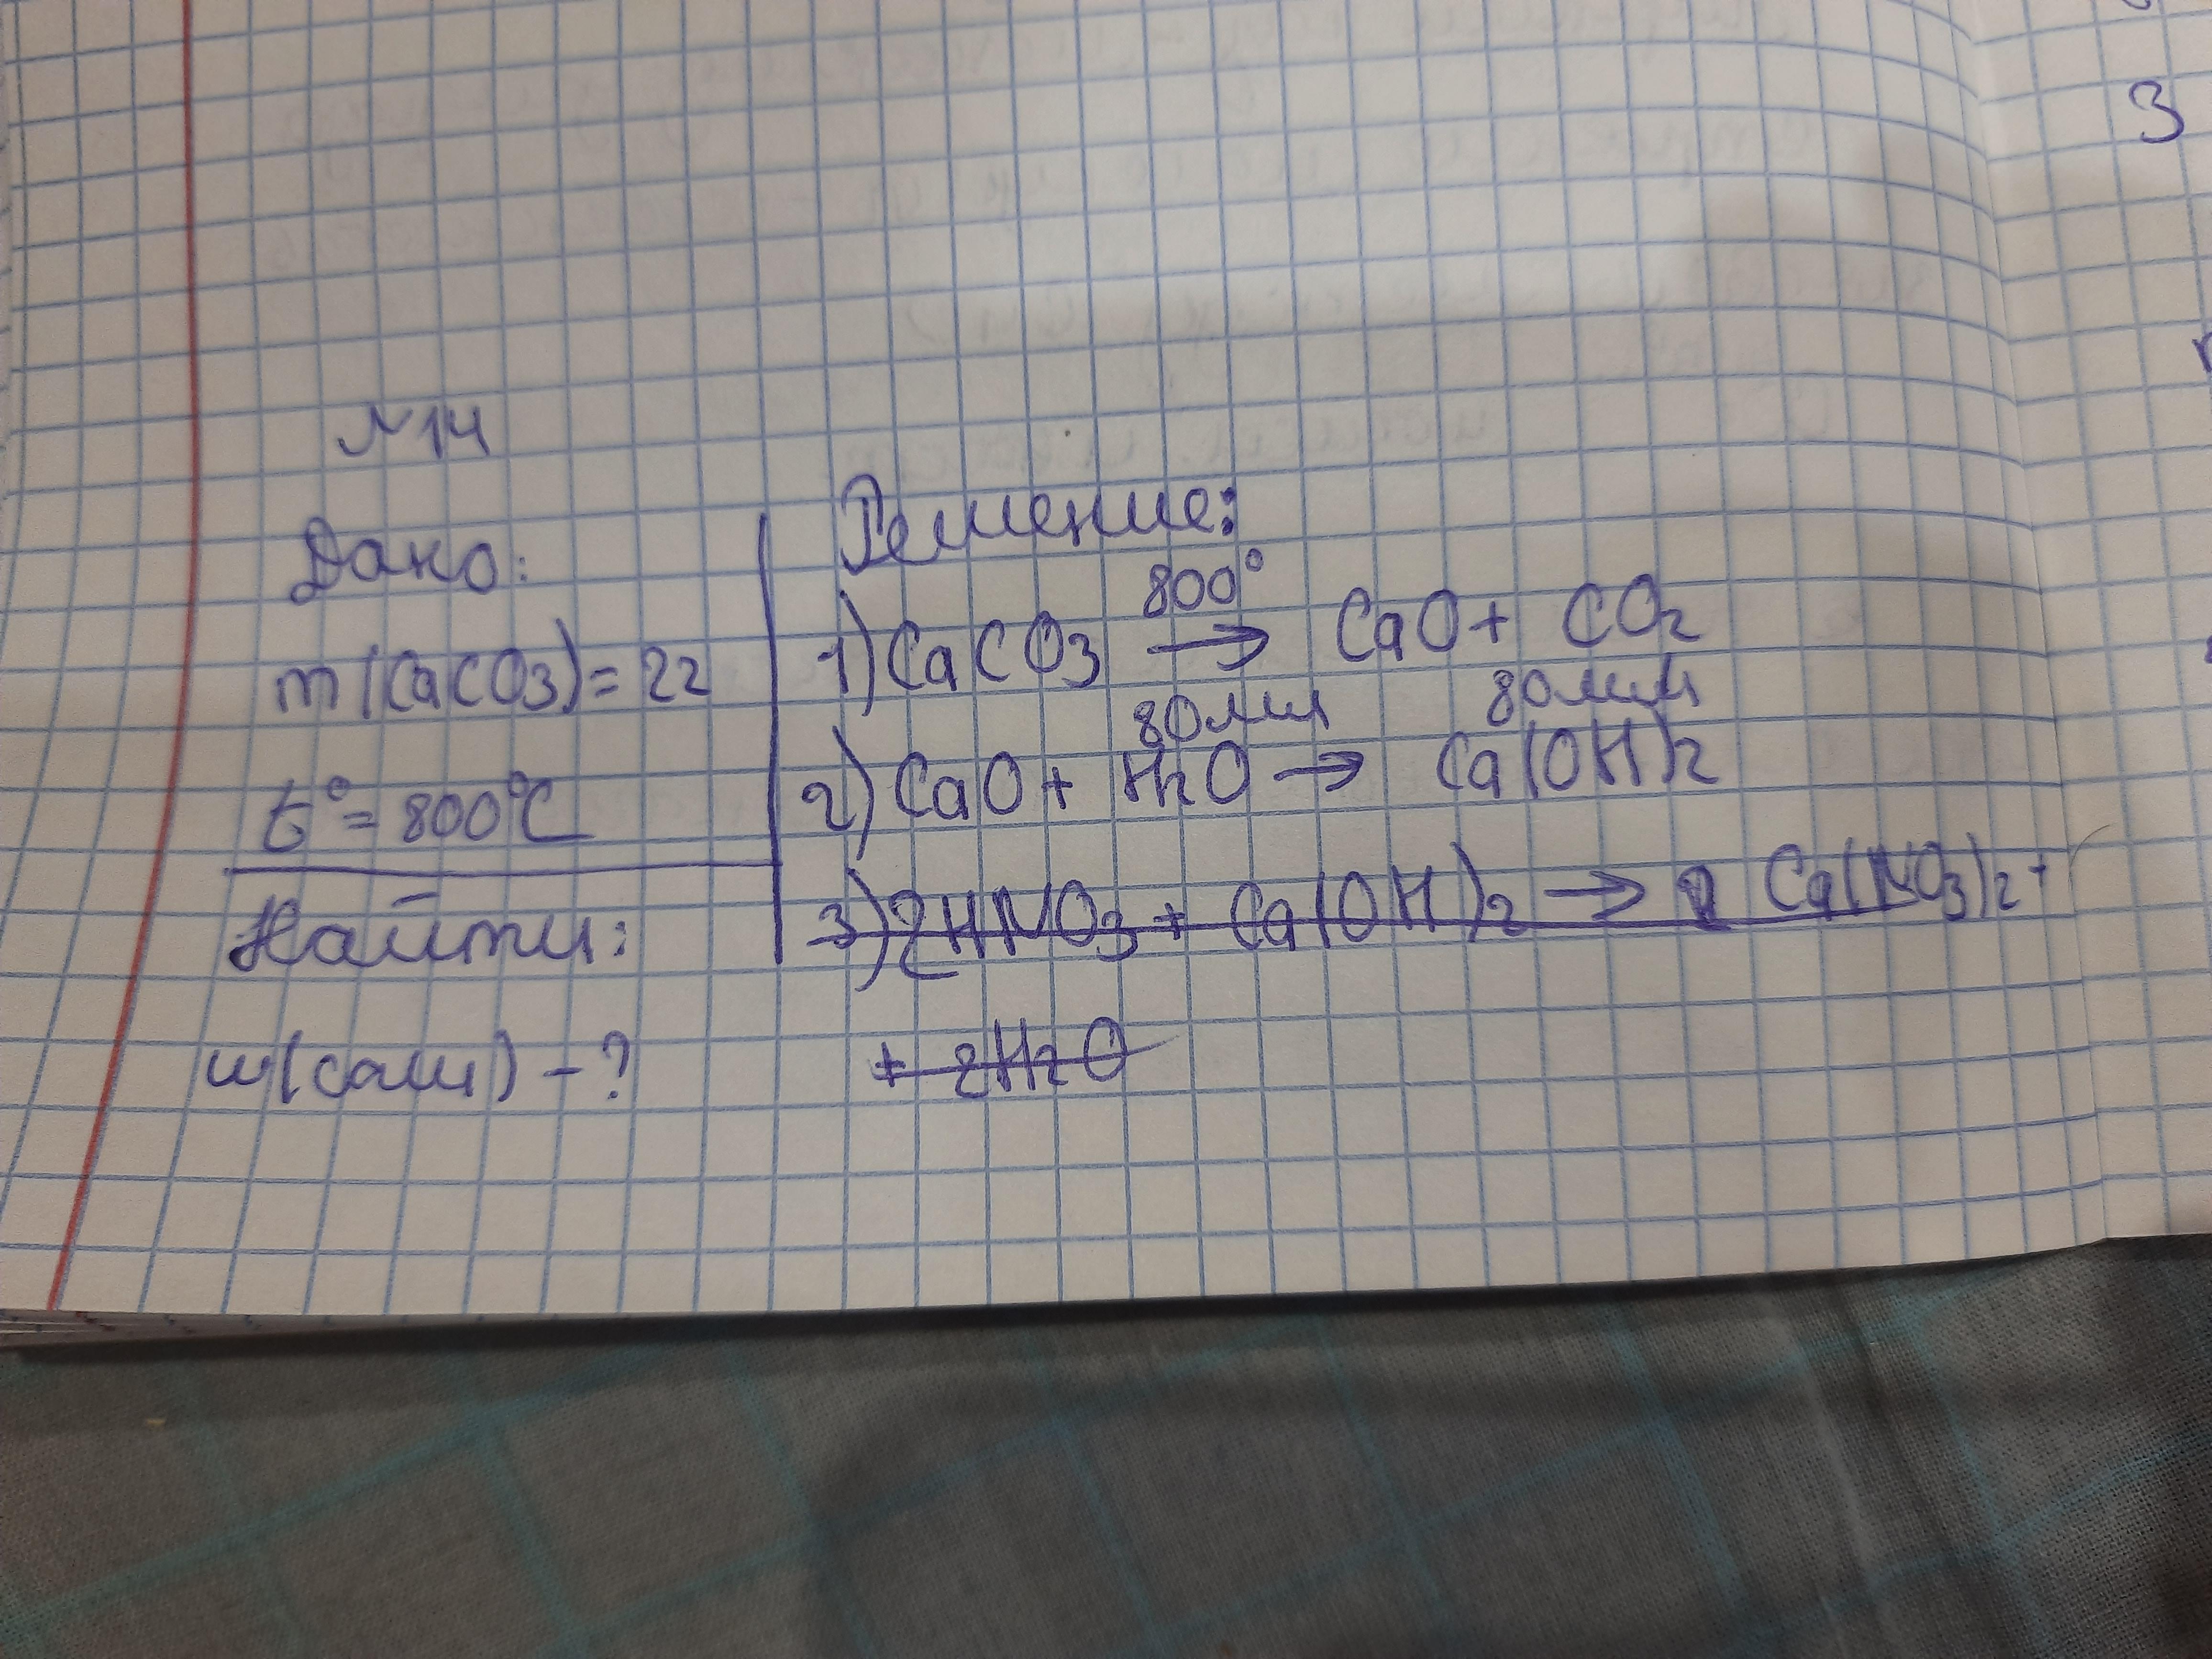 №14
Дано:
m(CaCO3)=2г
t°=800°C
Найти:
w(соли) - ?
Решение:
800°
1) CaCO3 → CaO + CO2
80мл 80мл
2) CaO + H2O → Ca(OH)2
3) 2HNO3 + Ca(OH)2 → Ca(NO3)2 +
+ 2H2O
3